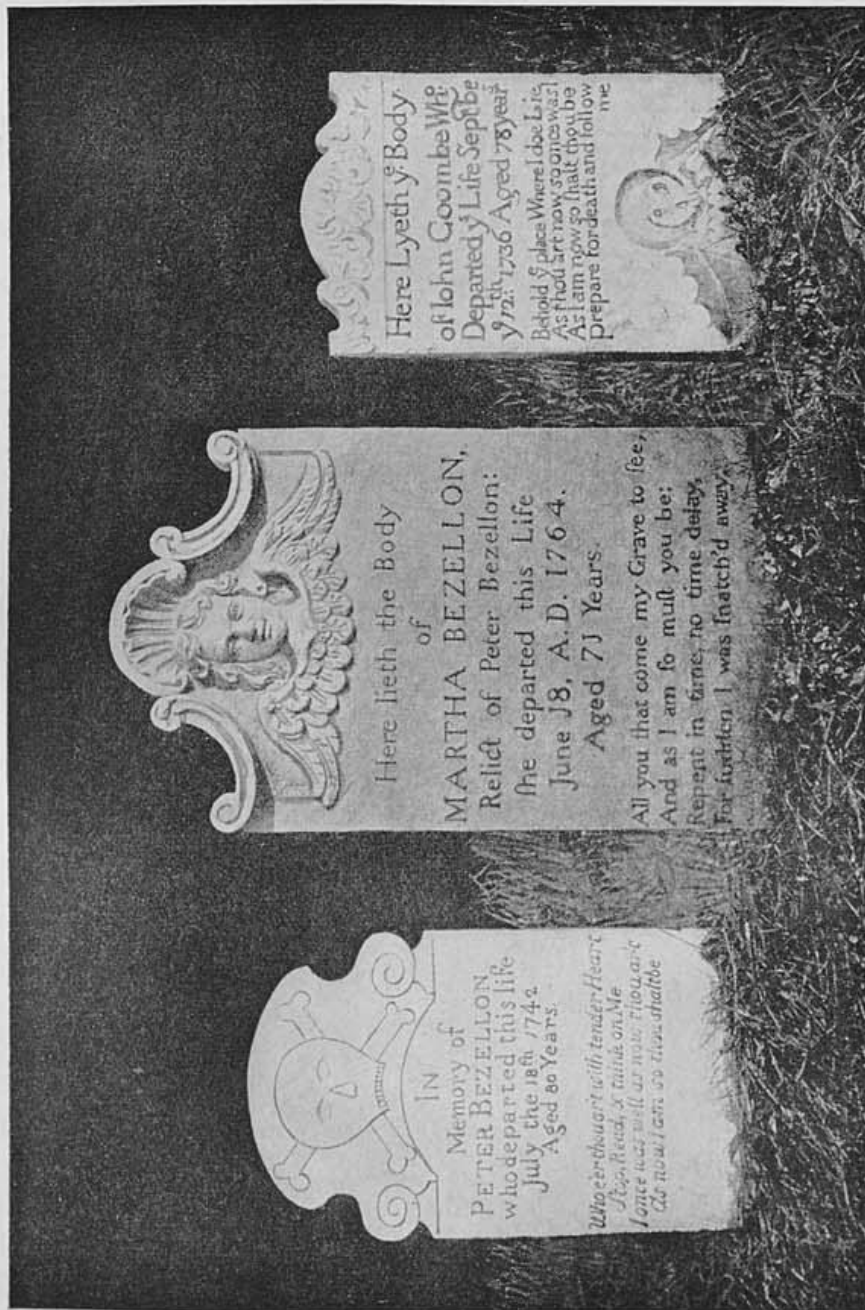 IN
Memory of
PETER BEZELLON
who departed this life
July the 18th 1742
Aged 80 Years.
Who e'er thou art with tender Heart
Stop, Read, & think on Me
I once was well as now thou art
As now I am so thou shalt be
Here lieth the Body
of
MARTHA BEZELLON,
Relict of Peter Bezellon:
ſhe departed this Life
June J8, A.D. 1764.
Aged 7J Years.
All you that come my Grave to ſee,
And as I am ſo muſt you be:
Repent in time, no time delay,
For ſudden I was ſnatch'd away.
Here Lyeth yͤ Body
of Iohn Coombe Whͦ
Departed yͤ Life Septbe
yͤ 12th: 1736 Aged 78 yearˢ
Behold yͤ place Where I doe Lie
As thou art now, so once was I
As I am now so ſhalt thou be
prepare for death and follow
me